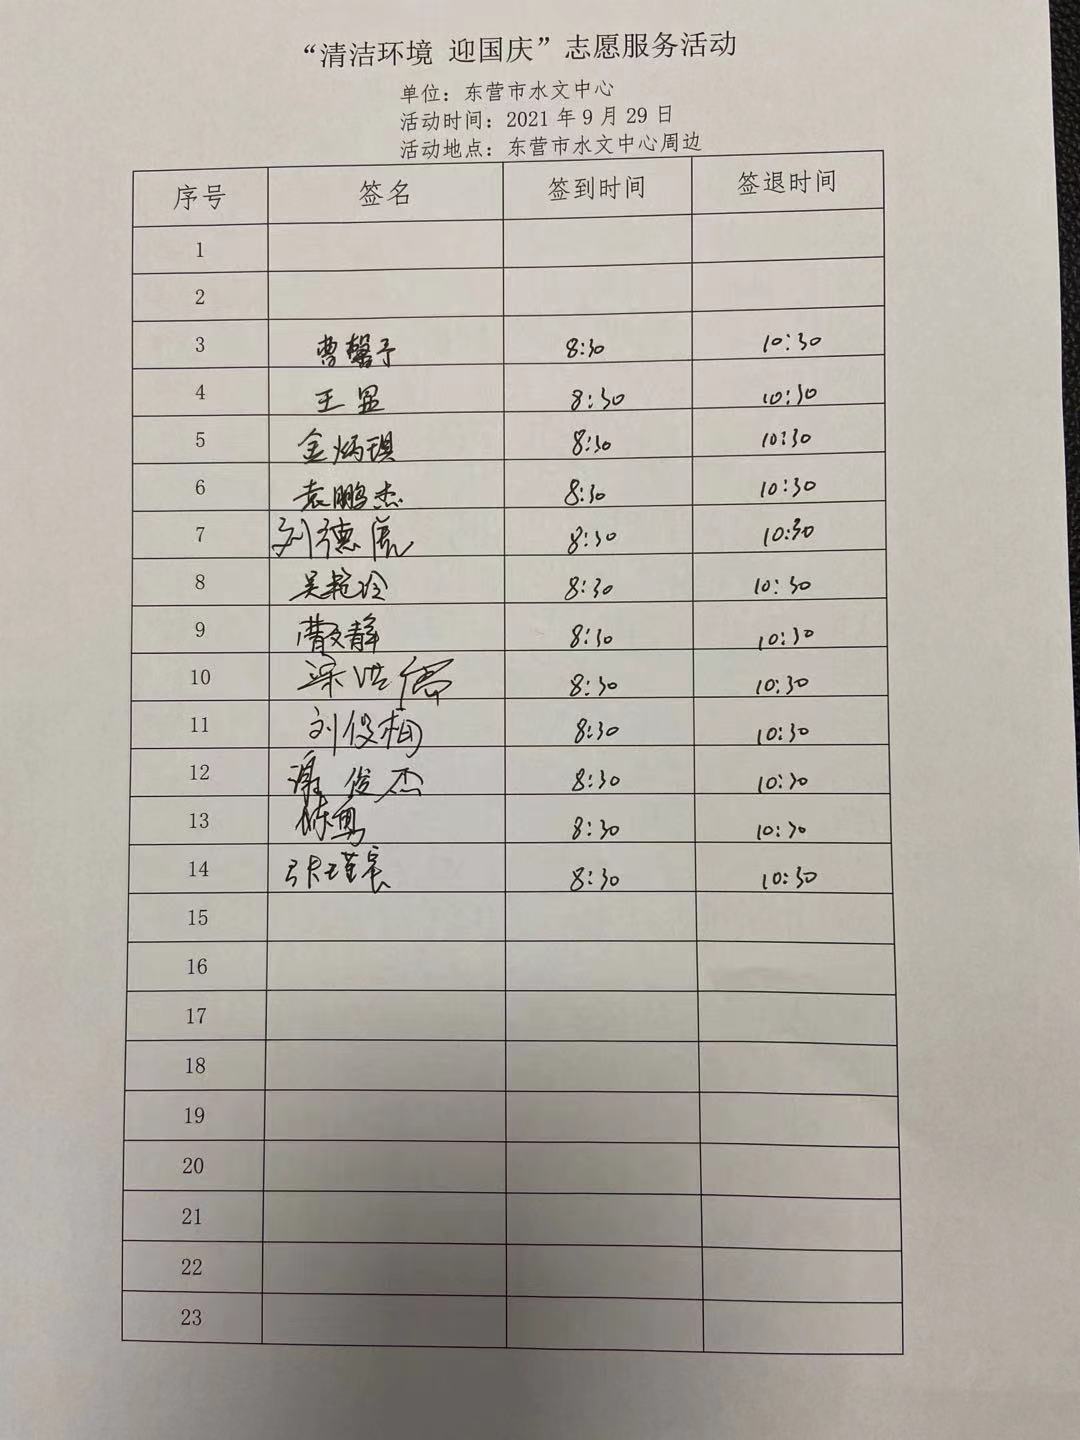 “清洁环境 迎国庆”志愿服务活动
单位：东营市水文中心
活动时间：2021 年 9 月 29 日
活动地点：东营市水文中心周边
序号 签名 签到时间 签退时间
1
2
3 曹馨予 8:30 10:30
4 王显 8:30 10:30
5 金炳琪 8:30 10:30
6 袁鹏杰 8:30 10:30
7 刘德 8:30 10:30
8 吴艳玲 8:30 10:30
9 静 8:30 10:30
10 梁洪儒 8:30 10:30
11 刘俊梅 8:30 10:30
12 俊杰 8:30 10:30
13 8:30 10:30
14 张瑾宸 8:30 10:30
15
16
17
18
19
20
21
22
23